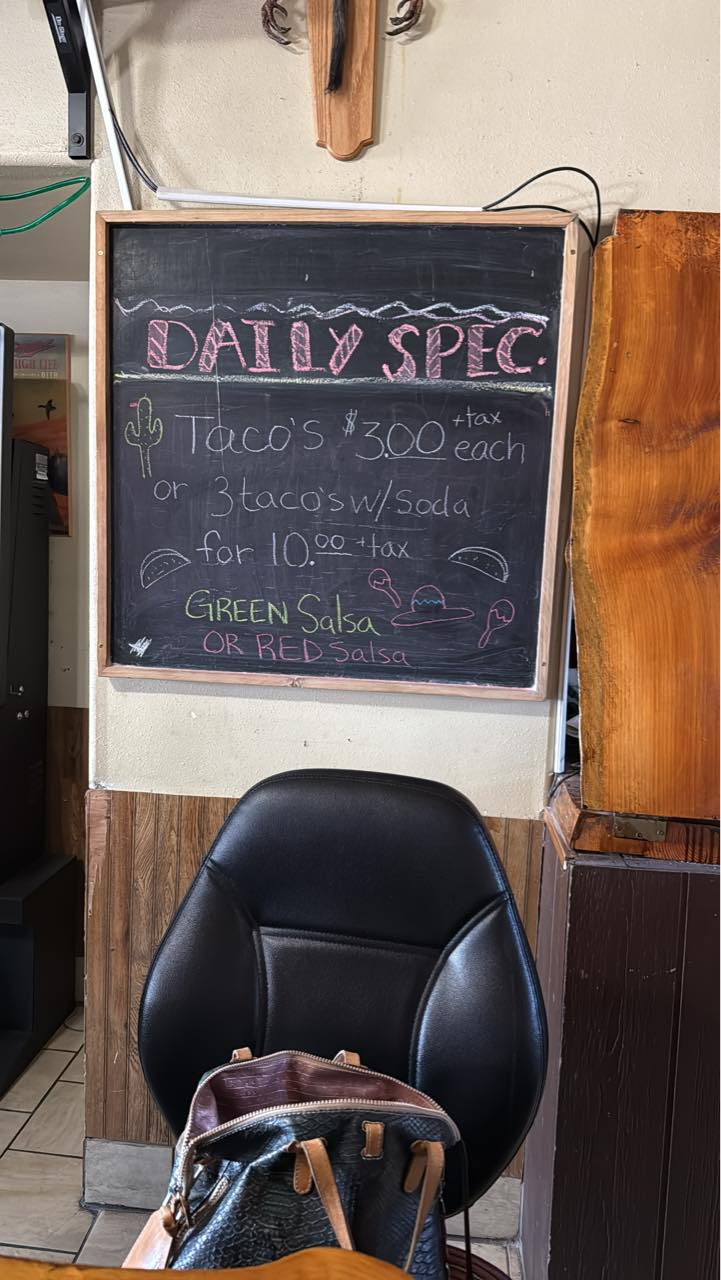 On-Stage
HIGH LIFE
DAILY SPEC.
Taco's $3.00 +tax each
or 3 taco's w/ soda
for 10.00 +tax
GREEN Salsa
OR RED Salsa